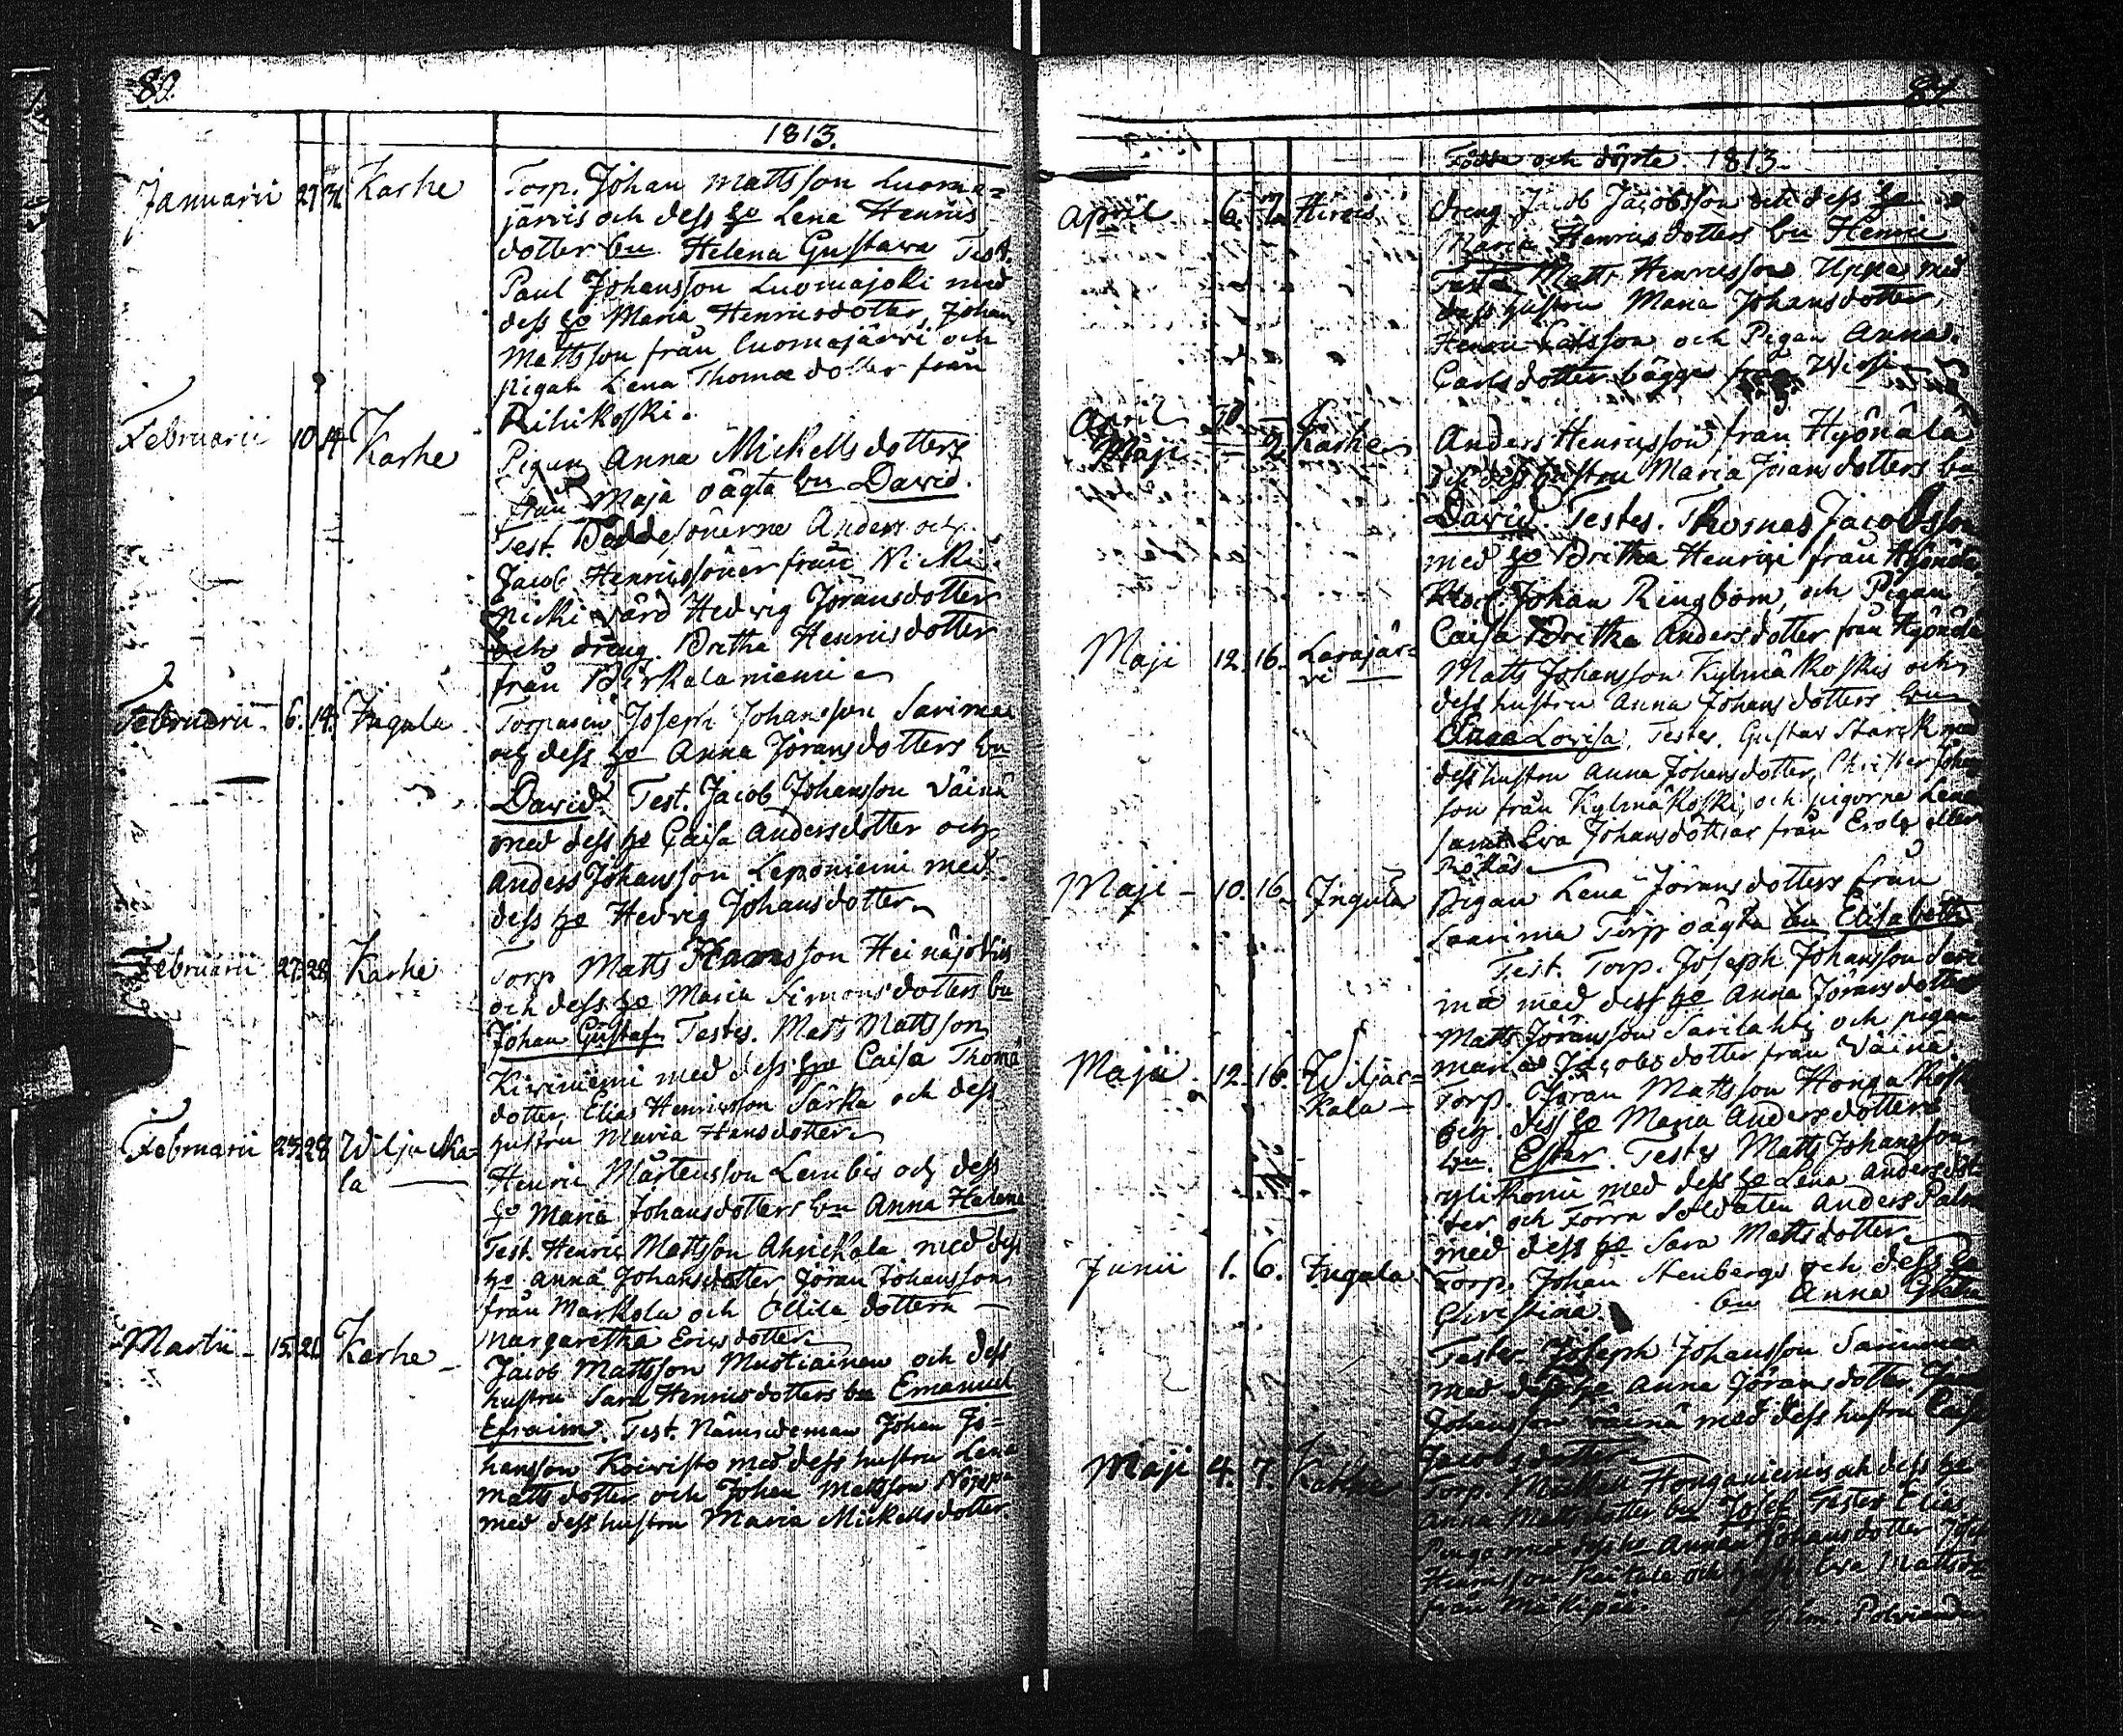 80.
1813.
Januarii 27 31 Karhe Torp. Johan Mattsson Luoma=
järvis och dess ho Lena Henrics
dotter bn Helena Gustava Test.
Paul Johansson Luomajoki med
dess ho Maria Henricsdotter, Johan
Mattsson från Luomajärvi och
pigan Lena Thomædotter från
Riihikoski.
Februarii 10 14 Karhe Pigan Anna Mickellsdotters
från Maja oägta bn David.
Test. Anders och
Jacob Henricssöner från Nicki
Nicki värd Hedvig Jöransdotter
och dreng. Britha Henricsdotter
från Pirkalaniemi
Februarii 6. 14. Ingala Torparen Joseph Johansson Sarimas
och dess ho Anna Jöransdotters bn
David. Test. Jacob Johansson Väinä
med dess ho Caisa Andersdotter och
Anders Johansson Leponiemi med
dess ho Hedvig Johansdotter
Februarii 27. 28. Karhe Torp Matts Hansson Heinäjokis
och dess ho Maria Simonsdotters bn
Johan Gustaf. Testes. Matts Mattsson
Kiviniemi med dess ho Caisa Thomæ
dotter, Elias Henricsson Särka och dess
hustru Maria Hansdotter
Februarii 23. 28 Wiljacka=
la Henric Mårtensson Lembis och dess
ho Maria Johansdotters bn Anna Helena
Test. Henric Mattsson Ahrickala med dess
ho Anna Johansdotter Jöran Johansson
från Markola och dottern
Margaretha Ericsdotter
Martii 15. 21. Karhe Jacob Mattsson Mustiainen och dess
hustru Sara Henricsdotters bn Emanuel
Efraim. Test. Nämndeman Johan Jo=
hansson Koivisto med dess hustru Lena
Mattsdotter och Johan Mattsson Noppa
med dess hustru Maria Mickellsdotter.
81.
Födde och döpte. 1813.
April 6. 7. Hirois dreng Jacob Jacobsson och dess ho
Maria Henricsdotters bn Henric
Matts Henricsson Uppa med
dess hustru Maria Johansdotter,
Henric och Pigan Anna
Carlsdotter bägge från
April 30.
Maji 2. Karhe Anders Henricsson från Hyönälä
och dess hustru Maria Jöransdotters bn
David. Testes. Thomas Jacobsson
med ho Britha Henrici från Hyönälä
Johan Ringbom, och Pigan
Caisa Britha Andersdotter från Hyönälä
Maji 12. 16. Lavajär=
vi Matts Johansson Kylmäkoskis och
dess hustru Anna Johansdotters bn
Anna Lovisa. Testes. Gustav Starck med
dess hustru Anna Johansdotter, Christer Johan
son från Kylmäkoski, och pigorne Lena
samt Eva Johansdöttrar från Erola eller
Maji 10. 16. Ingala Pigan Lena Jöransdotters från
Saarima Torp oägta bn Elisabeth
Test. Torp. Joseph Johansson Sari
ma med dess ho Anna Jöransdotter
Matts Jöransson Sarilahti och pigan
Maria Jacobsdotter från Väinä
Maji 12. 16. Wiljac=
kala Torp. Jöran Mattsson Hongakoskis
och dess ho Maria Andersdotters
bn. Ester. Testes Matts Johansson
med dess ho Lena Andersdot
ter och förra Soldaten Anders
med dess ho Sara Mattsdotter
Junii 1. 6. Ingala Torp. Johan Stenbergs och dess ho
Christina. bn Anna
Testes Joseph Johansson Sarima
med dess ho Anna Jöransdotter
Johansson Väinä med dess hustru Caisa
Jacobsdotter
Maji 4. 7. Karhe Torp. Honganiemis och dess ho
Anna Mattsdotter bn Josef Testes Elias
med dess ho Anna Johansdotter
och Eva Mattsdr
från Mäkipää.